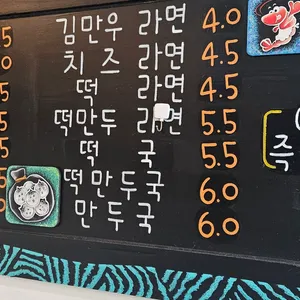 김만우 라면 4.0
치즈 라면 4.5
떡 라면 4.5
떡만두 라면 5.5
떡 국 5.5
떡만두국 6.0
만두국 6.0
즉